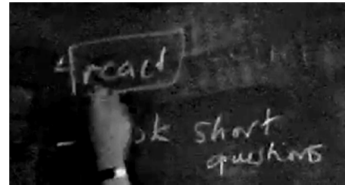 - react
- ask short
questions